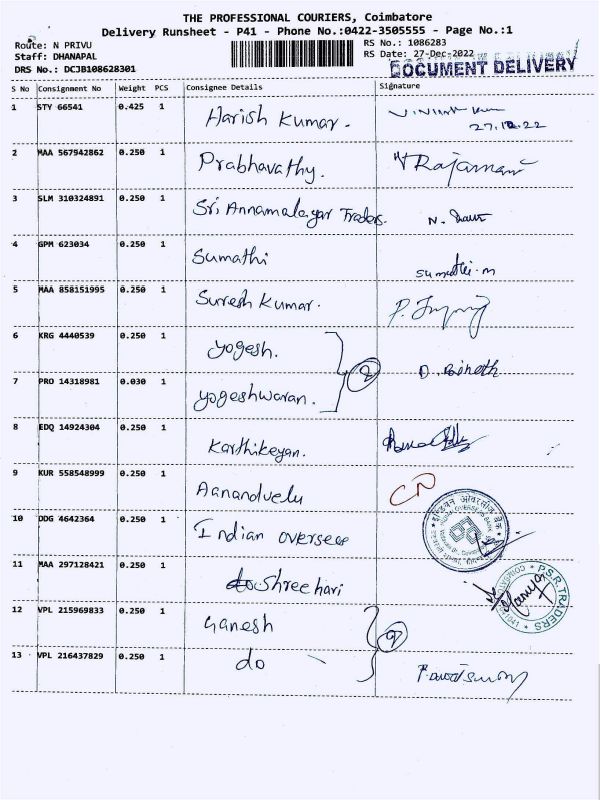 THE PROFESSIONAL COURIERS, Coimbatore
Delivery Runsheet - P41 - Phone No.:0422-3505555 - Page No.:1
Route: N PRIVU
RS No.: 1086283
Staff: DHANAPAL
RS Date: 27-Dec-2022
DRS No.: DCJB108628301
DOCUMENT DELIVERY
S No Consignment No Weight PCS Consignee Details Signature
1 STY 66541 0.425 1 Harish Kumar.
27.12.22
2 MAA 567942862 0.250 1 Prabhavathy. Rajamani
3 SLM 310324891 0.250 1 Sri Annamalayar Traders.
4 GPM 623034 0.250 1 Sumathi sumathi.m
5 MAA 858151995 0.250 1 Suresh Kumar.
6 KRG 4440539 0.250 1 yogesh. 2
7 PRO 14318981 0.030 1 yogeshwaran.
8 EDQ 14924304 0.250 1 Karthikeyan.
9 KUR 558548999 0.250 1 Aanandvelu
10 DDG 4642364 0.250 1 Indian overseas
11 MAA 297128421 0.250 1 Shreehari
P.S.R TRADERS
12 VPL 215969833 0.250 1 Ganesh
13 VPL 216437829 0.250 1 do